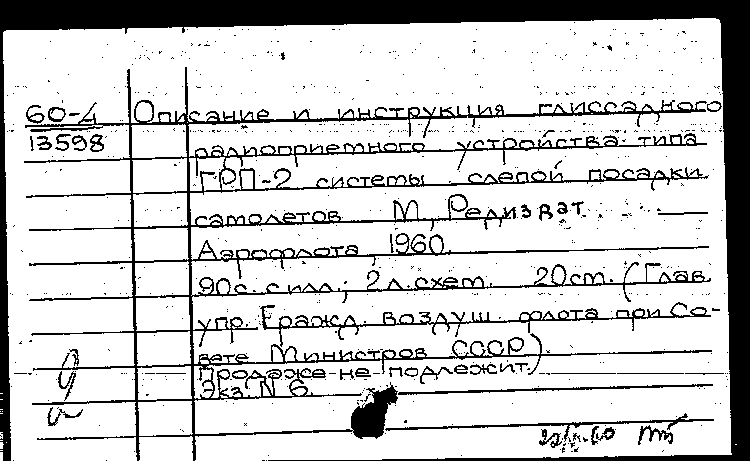 60-4 Описание и инструкция глиссадного
13598 радиоприемного устройства типа
ГРП-2 системы слепой посадки
самолетов М., Редиздат
Аэрофлота, 1960.
90с. с илл.; 2 л. схем. 20см. (Глав.
упр. Гражд. воздуш. флота при Со-
вете Министров СССР).
Продаже не подлежит.
Экз. N 6.